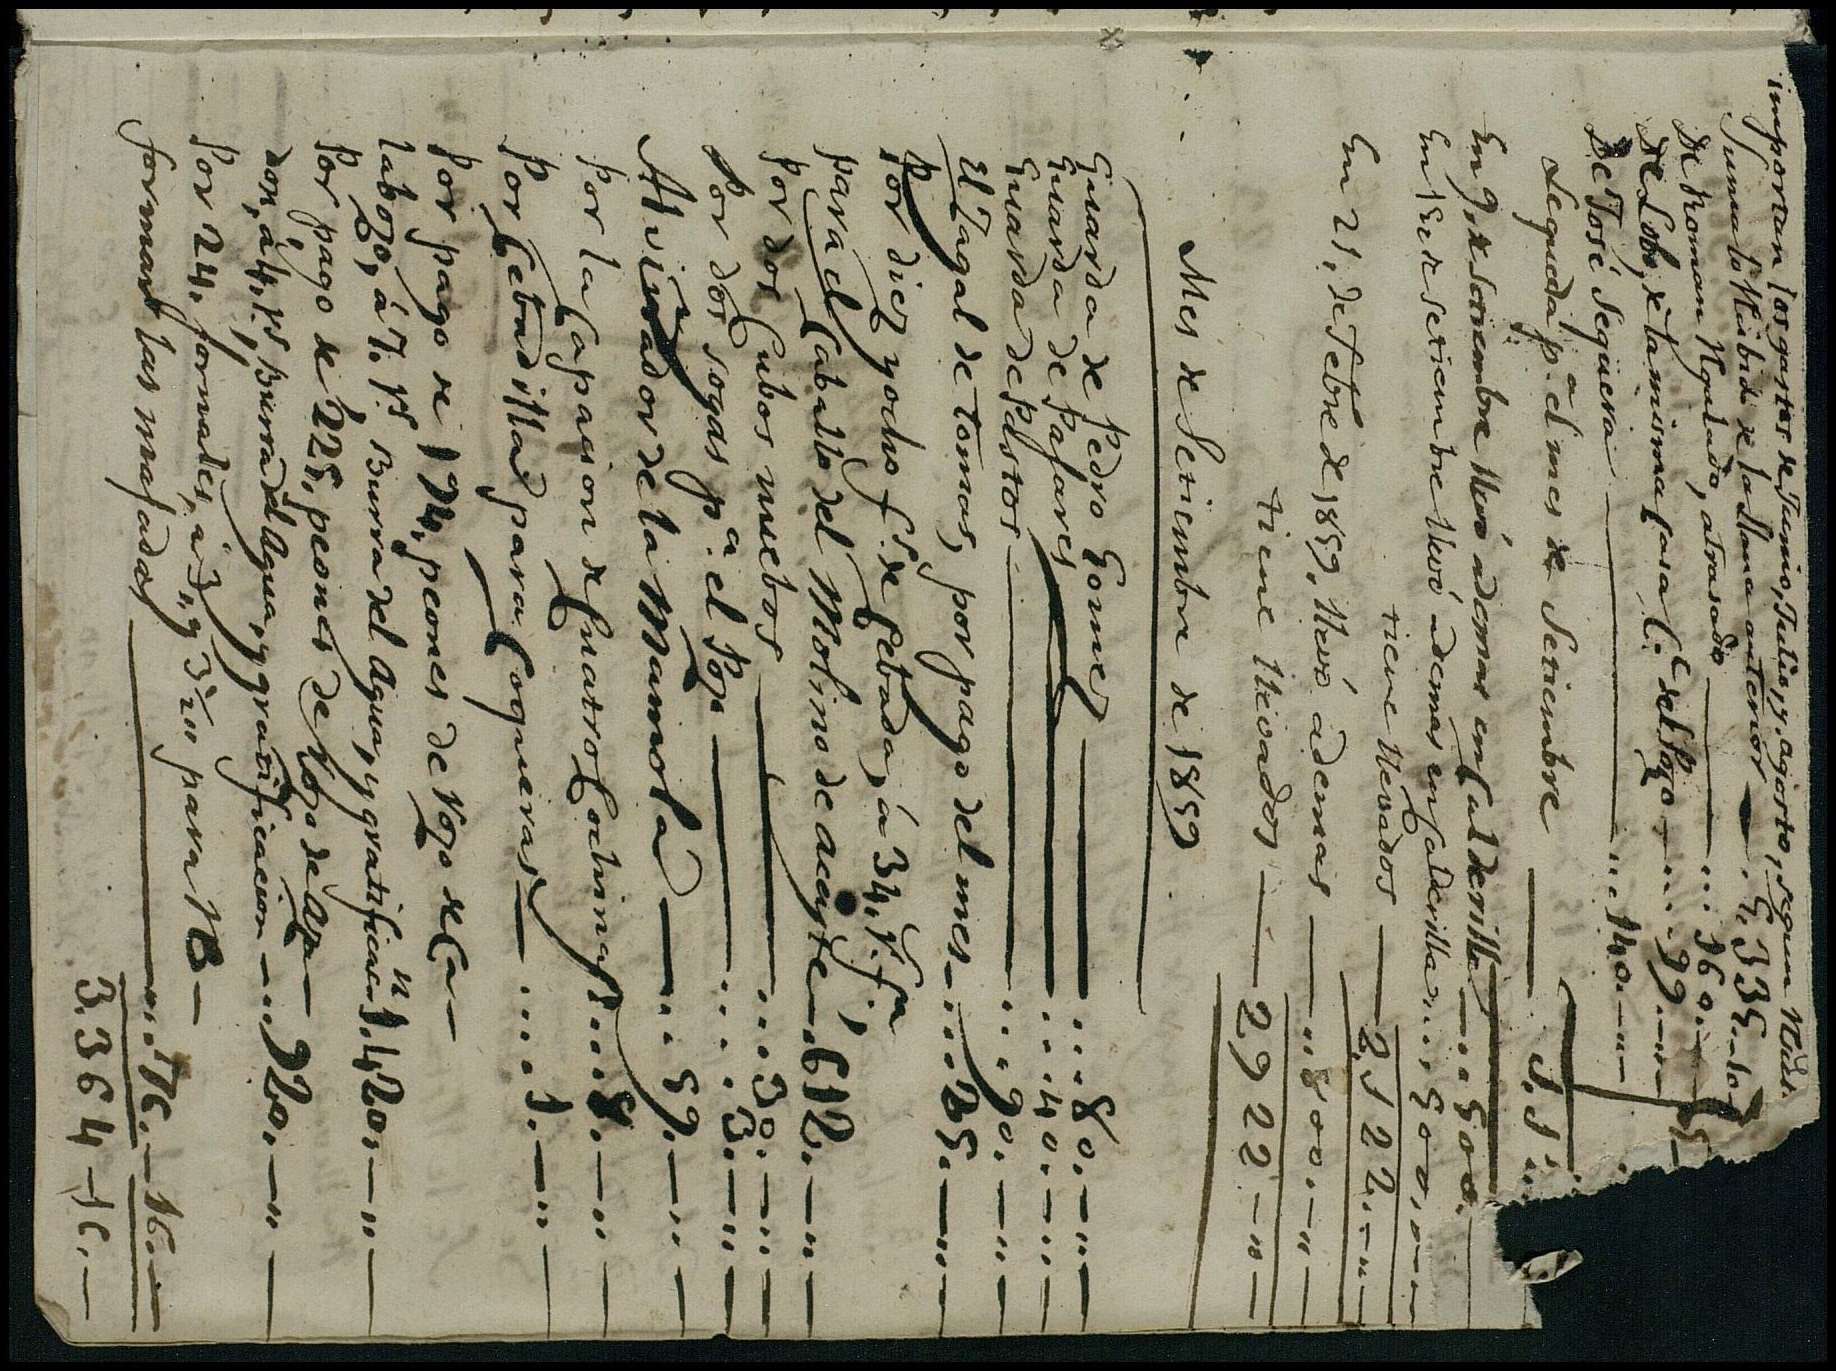 importan los gastos de Junio, Julio, y agosto, segun
Suma lo Rubide de la llana anterior
De Roman Hurtado, atrasado ... 960.
De Lobo, de la misma casa C.e del Pozo ... 99. — "
De José Sequera ... 140. — "
Le queda p.a el mes de Setiembre
En 9, de Setiembre llevó ademas en Calderilla ... 500.
En 15, de Setiembre llevó ademas en Calderilla ... 500. —
tiene llevados — 2122. — "
En 21, de Febre de 1859, llevó ademas ... 800. — "
tiene llevados — 2,922 — "
Mes de Setiembre de 1859
Guarda de Pedro Gomez ... 80. — "
Guarda de Pajares ... 40. — "
Guarda de Pastor ... 90. — "
El Zagal de Tomas, por pago del mes ... 125. — "
Por diez y ocho f.s de Cebada, á 34. r.s f.a,
para el Caballo del Molino de aceyte — 612. — "
por dos Cubos nuebos ... 30. — "
Por dos sogas p.a el Pozo ... 3. — "
Al Mirador de la Mamola — ... 59. — "
por la Capacion de Cuatro Cochinas ... 8. — "
Por Cebadilla para Coqueras — ... 1. — "
por pago de 194, peones de
labozo, á 7. r.s Burra del Agua, y gratificac.n 1.420. — "
Por pago de 225, peones de
dos, á 4, r.s, Burra del Agua, y gratificacion — ... 920. — "
Por 24, jornales, á 3, y 3 1/2 para
formar las majadas ... 76. — 16. —
3.364 — 16. —